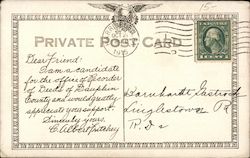 PRIVATE POST CARD
Dear Friend:
I am a candidate
for the office of Recorder
of Deeds of Dauphin
County and would greatly
appreciate your support.
Sincerely yours,
C. Albert
Linglestown Pa
R.D. 2
1 CENT 1